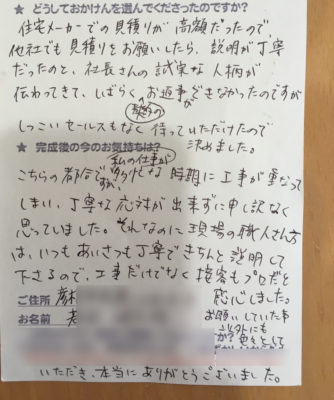 ★ どうしておかけんを選んでくださったのですか?
住宅メーカーでの見積りが高額だったので、
他社でも見積りをお願いしたら、説明が丁寧
だったのと、社長さんの誠実な人柄が
伝わってきて、しばらくお返事できなかったのですが
契約の
しつこいセールスもなく待っていただけたので
決めました。
★ 完成後の今のお気持ちは?
私の仕事が
こちらの都合で多忙な時期に工事が重なって
しまい、丁寧な応対が出来ずに申し訳なく
思っていました。それなのに現場の職人さん方
は、いつもあいさつも丁寧できちんと説明して
下さるので、工事だけでなく接客もプロだと
ご住所 彦根
感心しました。
お名前
お願いしていた事
以外にも
色々として
いただき、本当にありがとうございました。